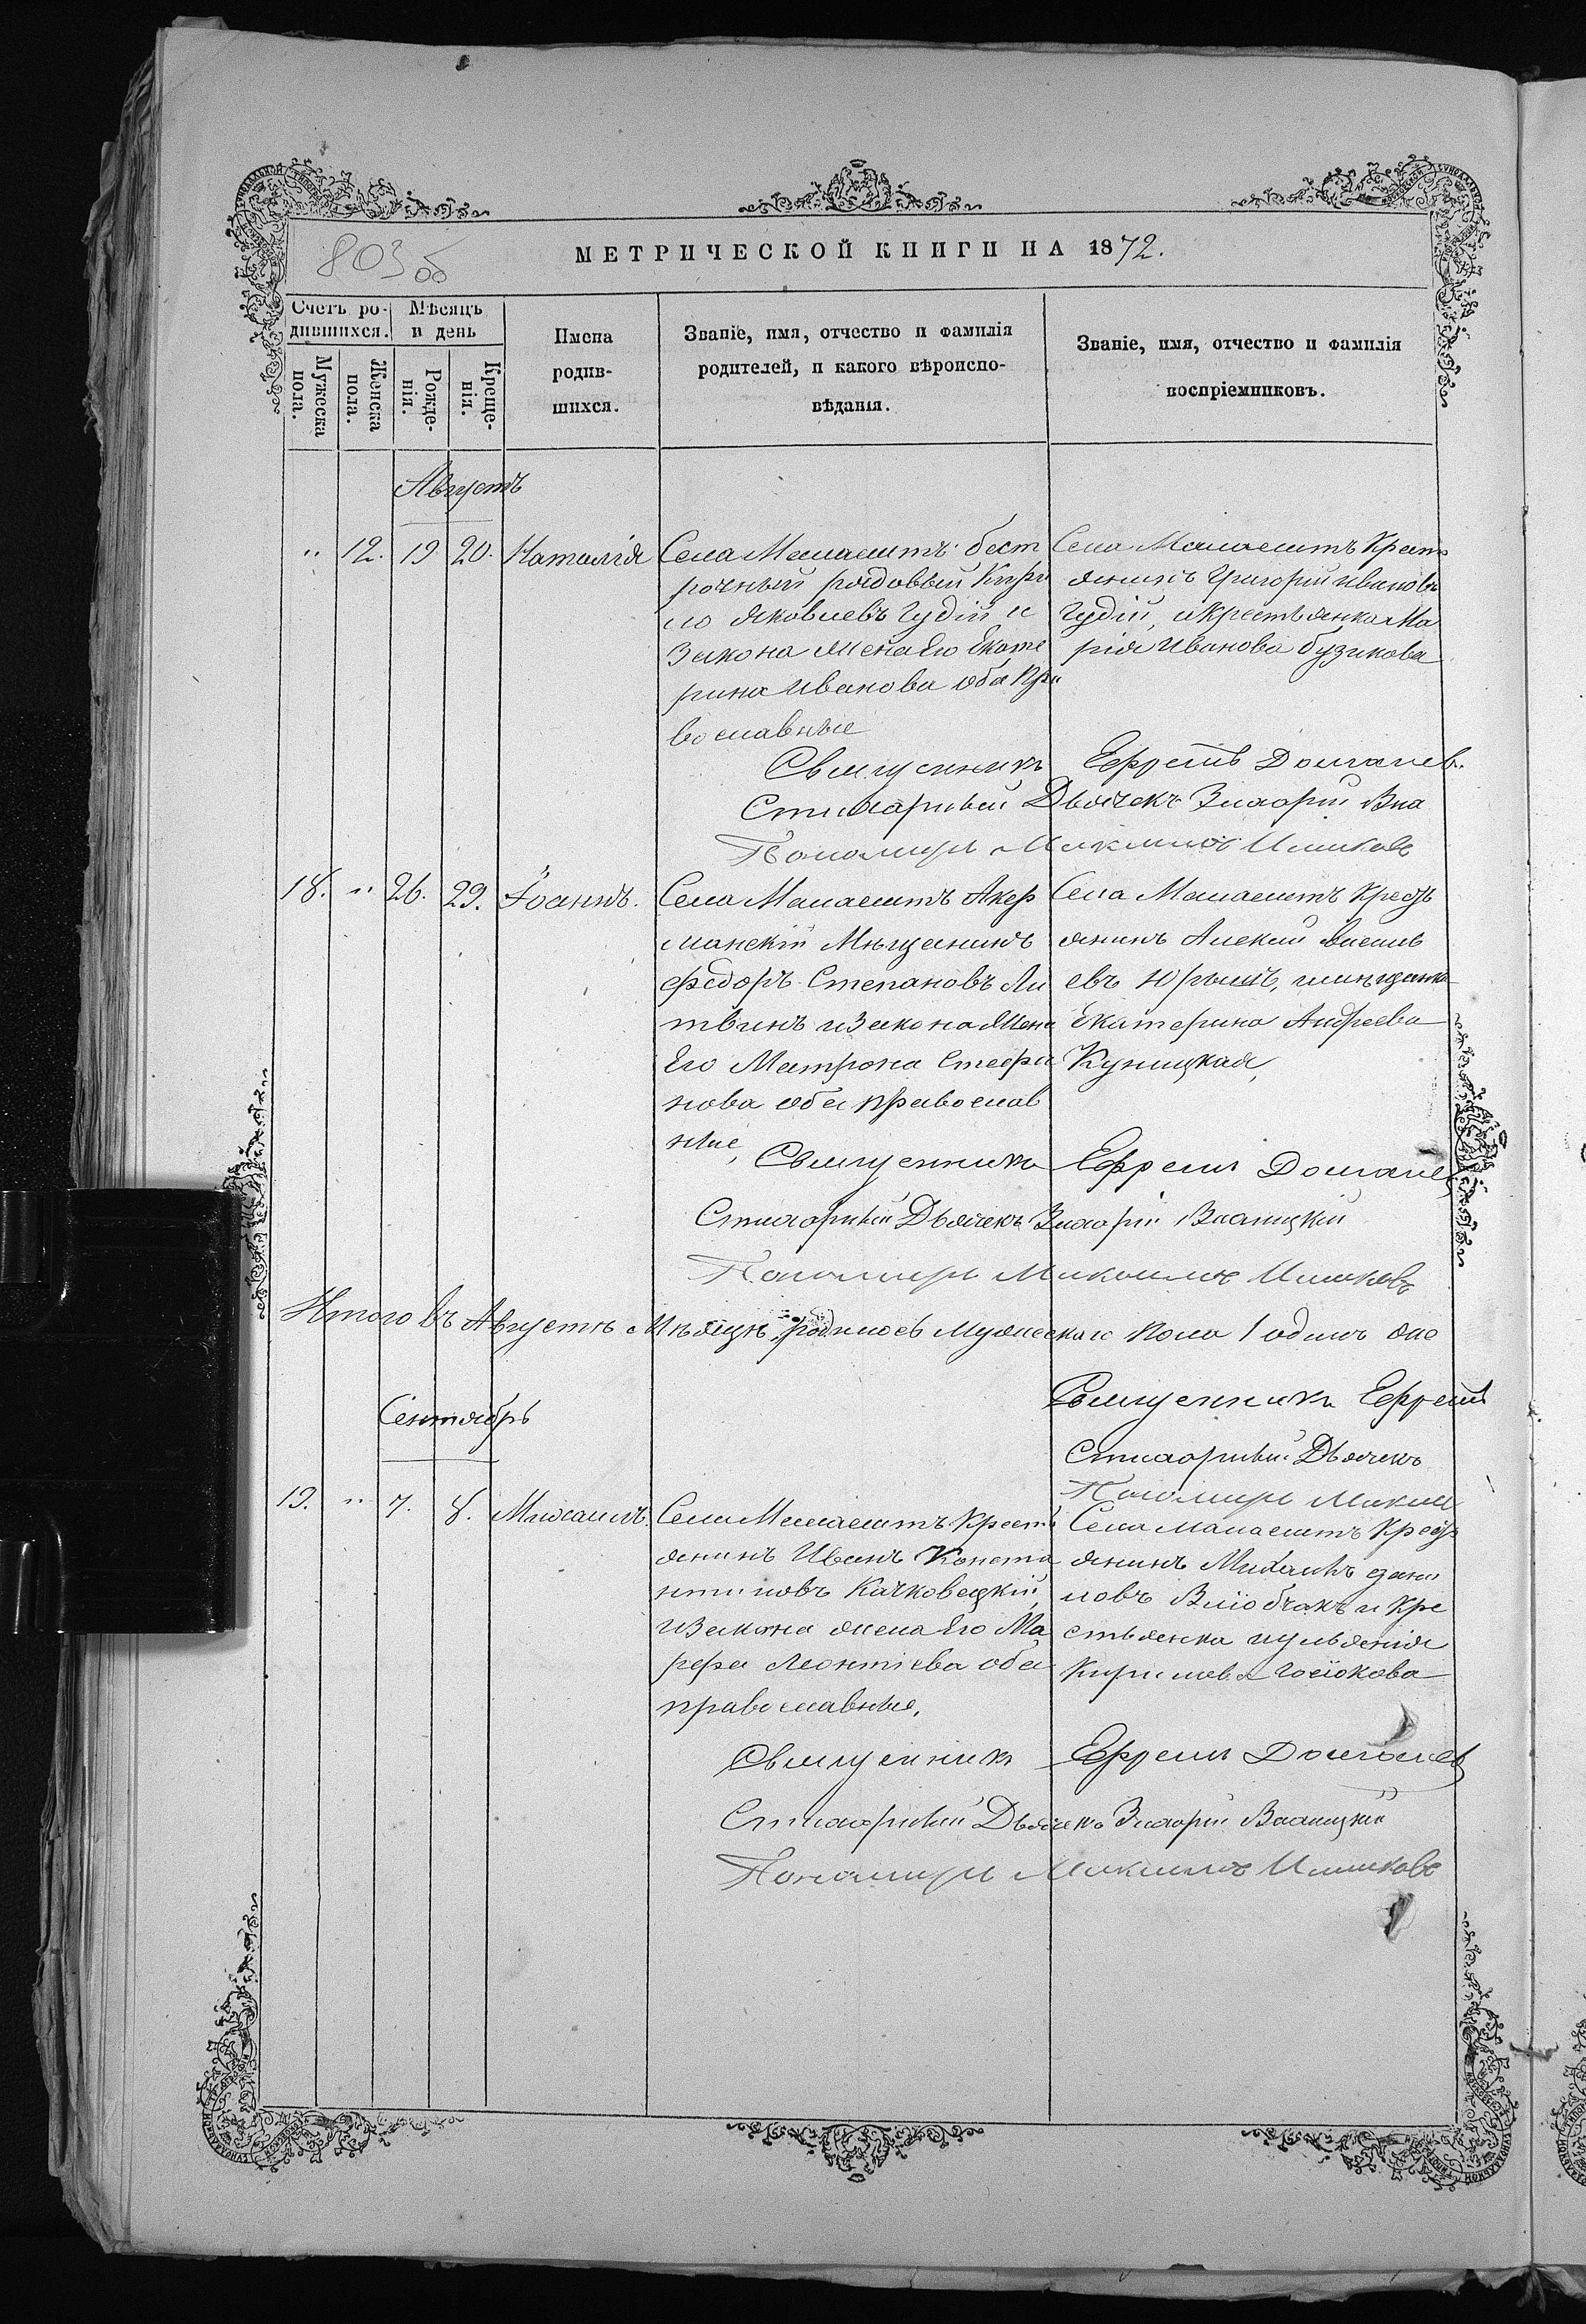 803 об
МЕТРИЧЕСКОЙ КНИГИ НА 1872.
Счетъ ро-
дившихся.
Мѣсяцъ
и день
Мужеска
пола.
Женска
пола.
Рожде-
нія.
Креще-
нія.
Имена
родив-
шихся.
Званіе, имя, отчество и фамилія
родителей, и какого вѣроиспо-
вѣданія.
Званіе, имя, отчество и фамилія
воспріемниковъ.
Августъ
" 12. 19 20. Наталія
Села Манаештъ бест
рочный рядовый Кири
ло Яковлевъ Гудій и
Закона жена Его Екате
рина Иванова оба Пра
вославные
Села Манаештъ Крест
янинъ Григорій Ивановъ
Гудій, и Крестьянка Ма
рія Иванова Бузикова
Священникъ Ефремъ
Стихарный Дьячекъ Вла
Пономарь
18. " 26. 29. Іоаннъ.
Села Манаештъ Акер
манскій Мѣщанинъ
Федоръ Степановъ Ли
твинъ и Закона Жена
Его Матрона Стефа
нова оба православ
ные,
Села Манаештъ Крест
янинъ Алексій
евъ и мѣщанка
Екатерина Андреева
Куницкая,
Священникъ Ефремъ
Стихарный Дьячекъ
Пономарь
Итого въ Августѣ Мѣсяцѣ родилось Мужеска пола 1 одинъ
Священникъ Ефремъ
Стихарный Дьячекъ
Пономарь
Сентябрь
19. " 7. 8. Михаилъ.
Села Манаештъ Крест
янинъ Иванъ Конста
нтиновъ Качковецкій,
и Закона жена Его Ма
рфа Леонтіева оба
православные,
Села Манаештъ Крест
янинъ Михаилъ
новъ и Кре
стьянка
Кирилова
Священникъ Ефремъ
Стихарный Дьячекъ
Пономарь